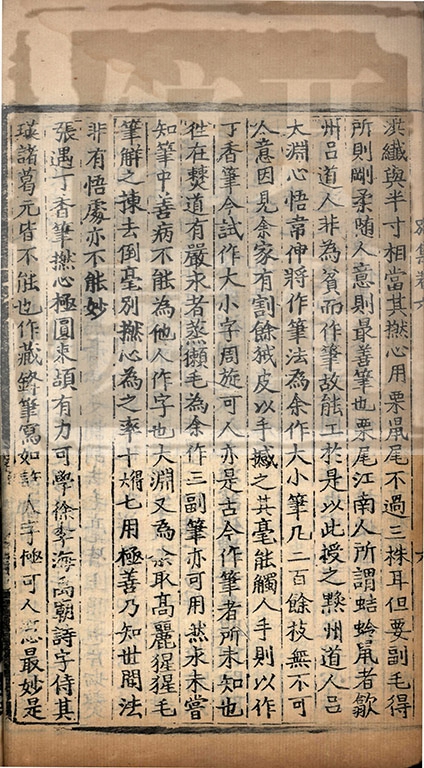 洪纖與半寸相當其撚心用栗䑕尾不過三株耳但要副毛得
所則剛柔隨人意則最善筆也栗尾江南人所謂蛣蛉䑕者歙
州吕道人非為貧而作筆故能工於是以此授之黟州道人吕
大淵心悟常伸將作筆法為余作大小筆凡二百餘枝無不可
人意因見余家有割餘狨皮以手撼之其毫能觸人手則以作
丁香筆今試作大小字周旋可人亦是古今作筆者所未知也
徃在僰道有嚴永者蒸獺毛為余作三副筆亦可用然永未嘗
知筆中善病不能為他人作字也大淵又為余取高麗猩猩毛
筆解之揀去倒毫别撚心為之率十得七用極善乃知世間法
非有悟處亦不能妙
張遇丁香筆撚心極圓束頡有力可學徐季海禹廟詩字侍其
瑛諸葛元皆不能也作藏鋒筆寫如許大字極可人意最妙是